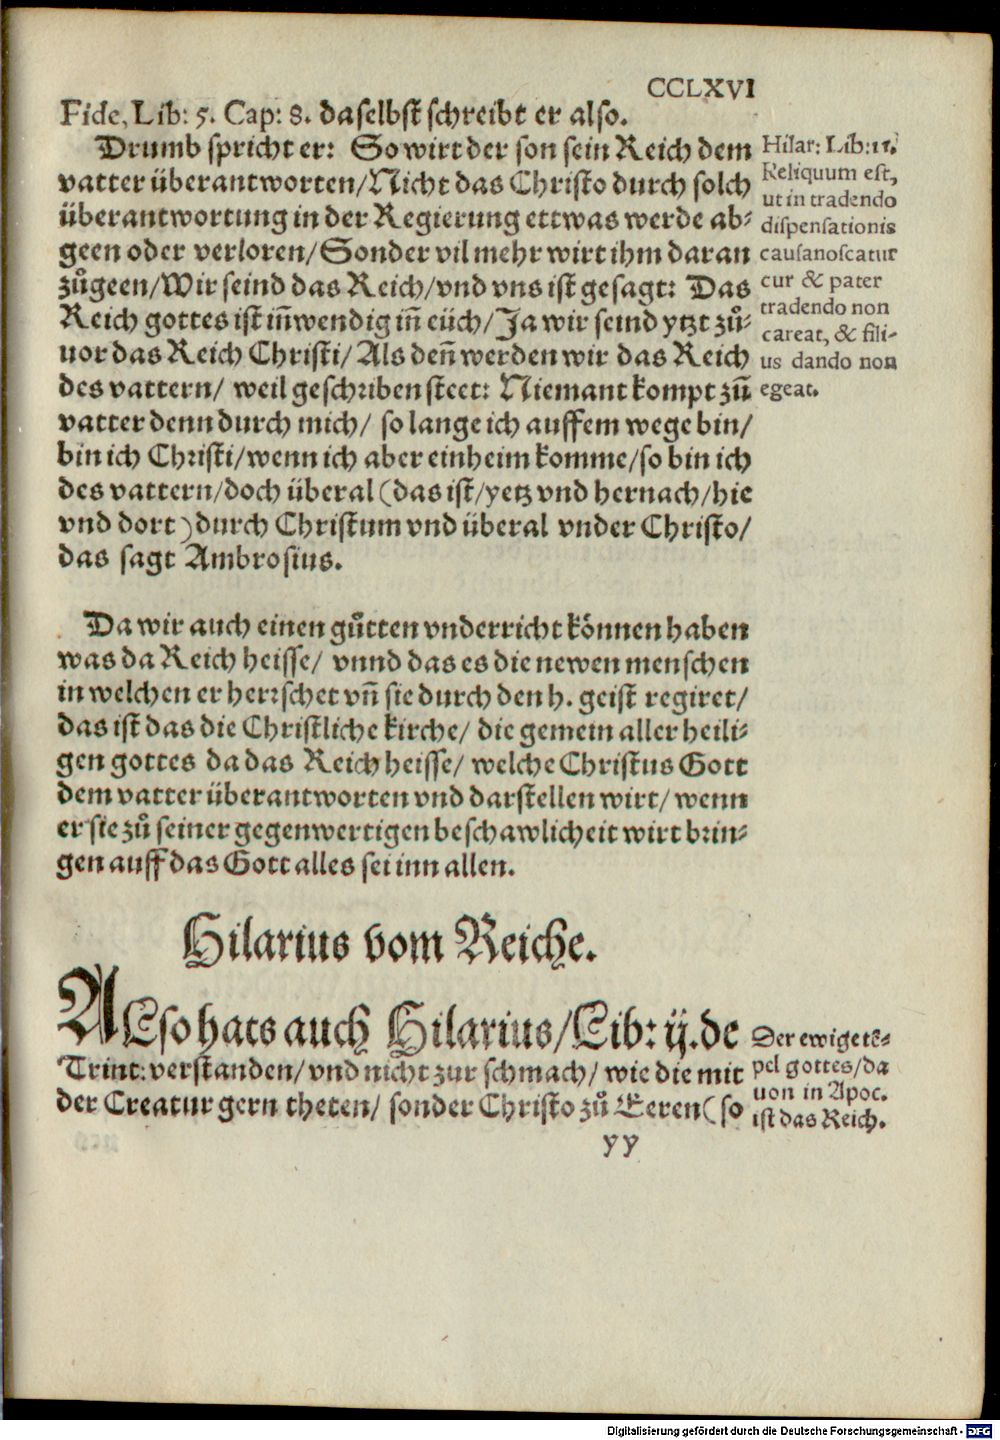 CCLXVI
Fide, Lib: 5. Cap: 8. daselbst schreibt er also.
Drumb spricht er: So wirt der son sein Reich dem
vatter überantworten/Nicht das Christo durch solch
überantwortung in der Regierung ettwas werde ab⸗
geen oder verloren/Sonder vil mehr wirt ihm daran
zůgeen/Wir seind das Reich/vnd vns ist gesagt: Das
Reich gottes ist iñwendig iñ eüch/Ja wir seind ytzt zů⸗
uor das Reich Christi/Als deñ werden wir das Reich
des vattern/ weil geschriben steet: Niemant kompt zů̃
vatter denn durch mich/ so lange ich auffem wege bin/
bin ich Christi/wenn ich aber einheim komme/so bin ich
des vattern/doch überal (das ist/yetz vnd hernach/hie
vnd dort) durch Christum vnd überal vnder Christo/
das sagt Ambrosius.
Da wir auch einen gůtten vnderricht können haben
was da Reich heisse/ vnnd das es die newen menschen
in welchen er herrschet vñ sie durch den h. geist regiret/
das ist das die Christliche kirche/ die gemein aller heili⸗
gen gottes da das Reich heisse/ welche Christus Gott
dem vatter überantworten vnd darstellen wirt/ wenn
er sie zů seiner gegenwertigen beschawlicheit wirt brin⸗
gen auff das Gott alles sei inn allen.
Hilarius vom Reiche.
ALso hats auch Hilarius/Lib: ij. de
Trint: verstanden/ vnd nicht zur schmach/ wie die mit
der Creatur gern theten/ sonder Christo zů Eeren (so
yy
Hilar: Lib: 11.
Reliquum est,
ut in tradendo
dispensationis
causa noscatur
cur & pater
tradendo non
careat, & fili-
us dando non
egeat.
Der ewige tē⸗
pel gottes/da
uon in Apoc.
ist das Reich.
Digitalisierung gefördert durch die Deutsche Forschungsgemeinschaft - DFG